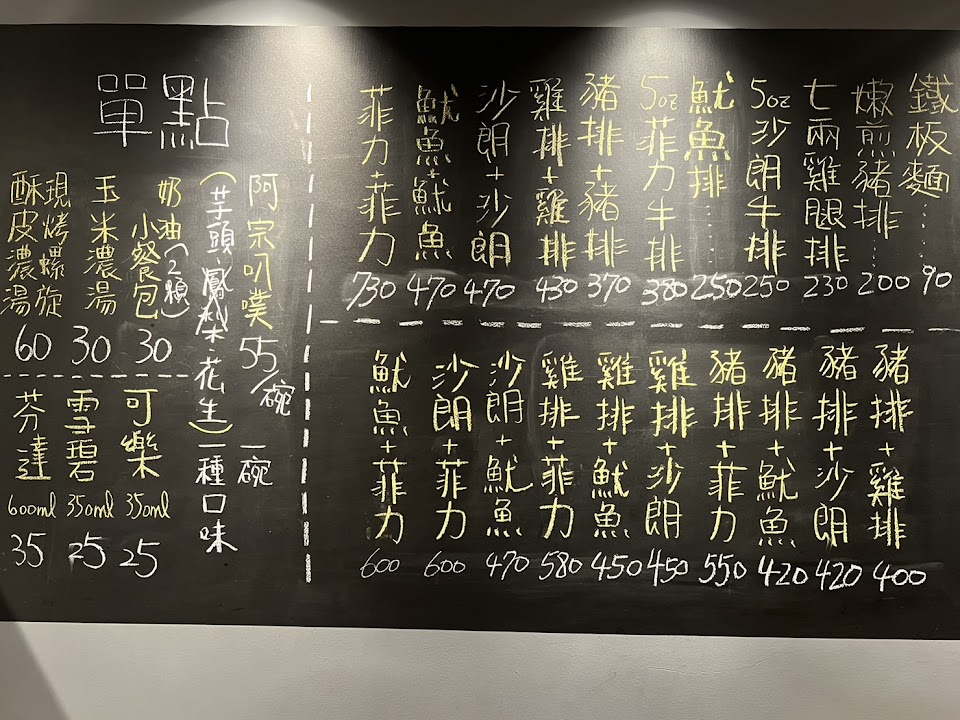 鐵板麵……90
嫩煎豬排……200
七兩雞腿排 230
5oz沙朗牛排 250
魷魚排……250
5oz菲力牛排 380
豬排+豬排 370
雞排+雞排 430
沙朗+沙朗 470
魷魚+魷魚 470
菲力+菲力 730
豬排+雞排 400
豬排+沙朗 420
豬排+魷魚 420
豬排+菲力 550
雞排+沙朗 450
雞排+魷魚 450
雞排+菲力 580
沙朗+魷魚 470
沙朗+菲力 600
魷魚+菲力 600
單點
阿宗叭噗 55/碗
(芋頭、鳳梨、花生)一碗一種口味
奶油小餐包(2顆) 30
玉米濃湯 30
現烤螺旋酥皮濃湯 60
可樂 350ml 25
雪碧 350ml 25
芬達 600ml 35